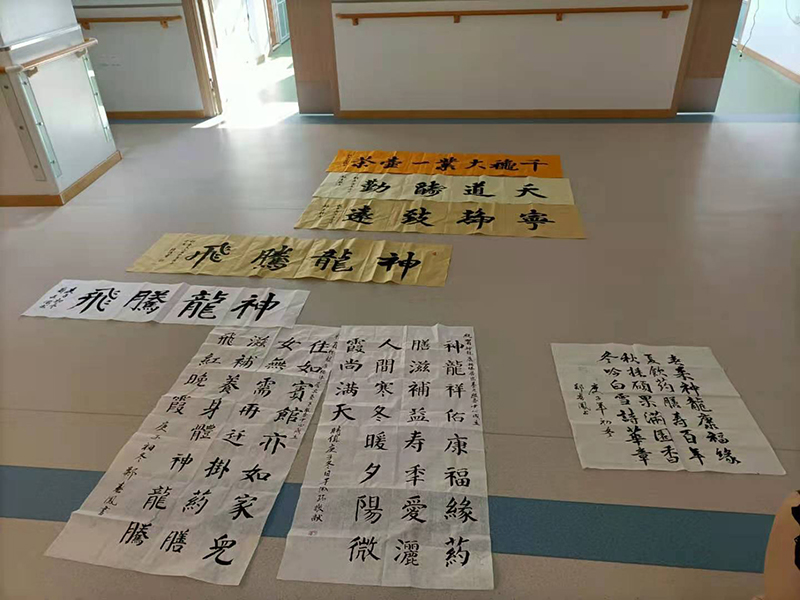 千穐大業一壺茶
天道酬勤
寧靜致遠
神龍騰飛
神龍騰飛
神龍祥佑康福緣葯
膳滋補益壽秊愛灑
人間寒冬暖夕陽微
霞尚满天
佳如賓館亦如家兒
女無需再迁掛葯膳
滋補養身體神龍騰
飛紅晚霞
神龍康福緣
夏飲葯膳寿百年
秋桂碩果滿園香
冬吟白雪詩華章
庚子年初冬